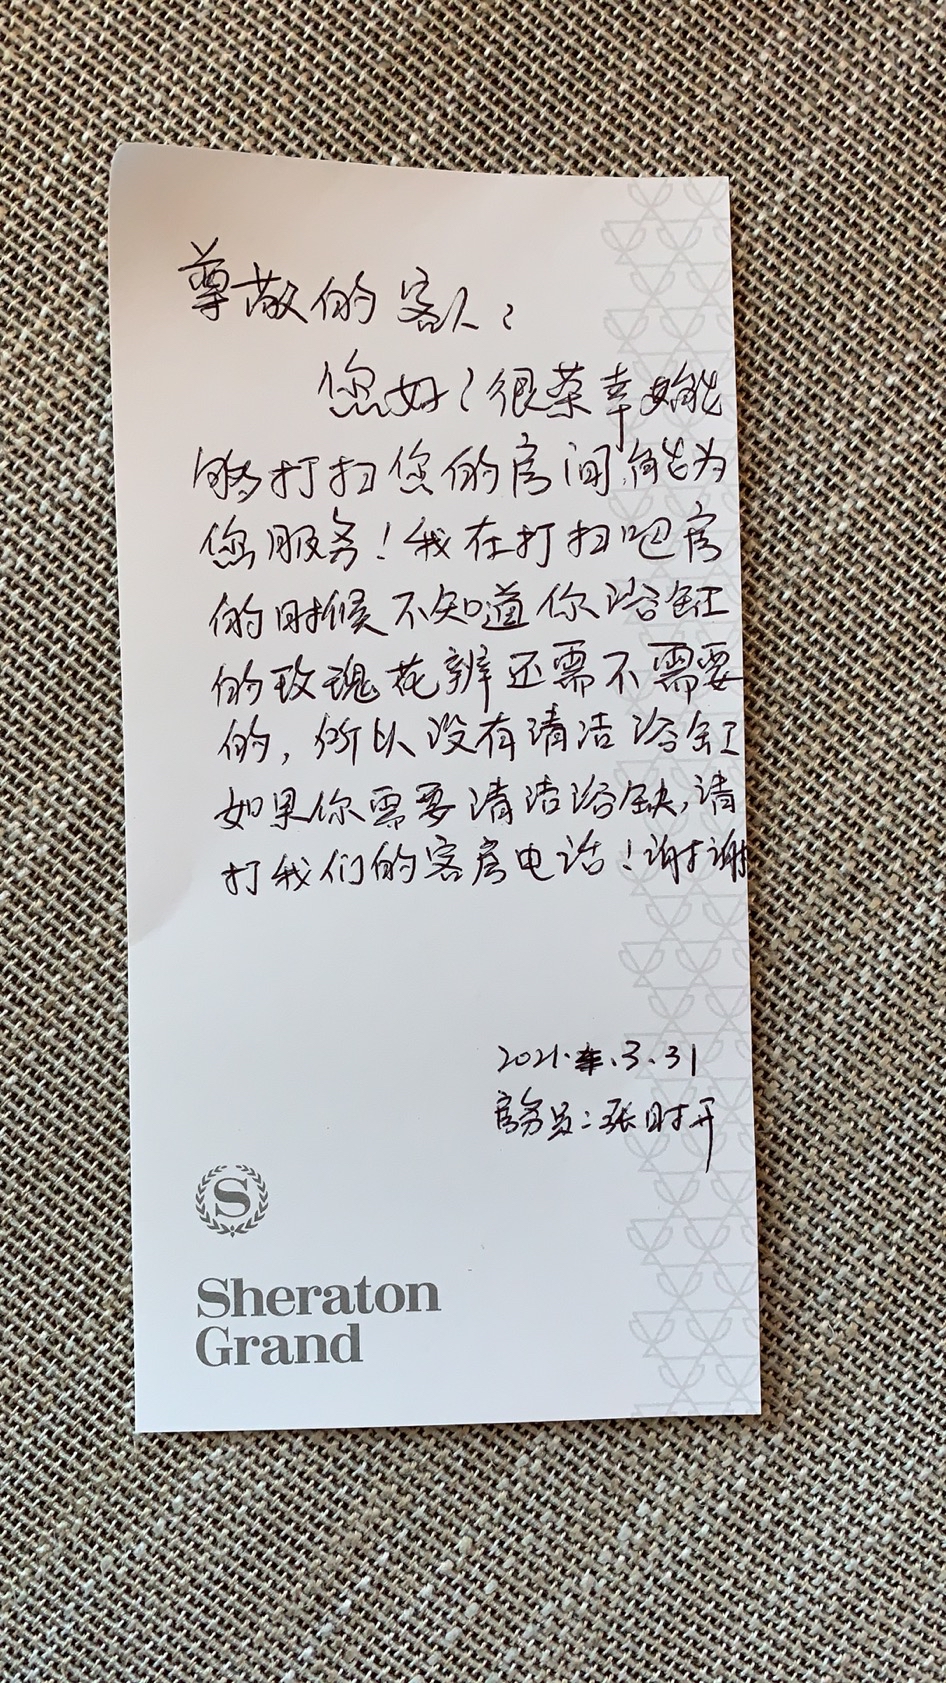 尊敬的客人：
您好！很荣幸能
够打扫您的房间，能为
您服务！我在打扫吧房
的时候不知道你浴缸
的玫瑰花辨还需不需要
的，所以没有清洁浴缸
如果你需要清洁浴缺，请
打我们的客房电话！谢谢
2021.年.3.31
房务员：张时开
S
Sheraton
Grand